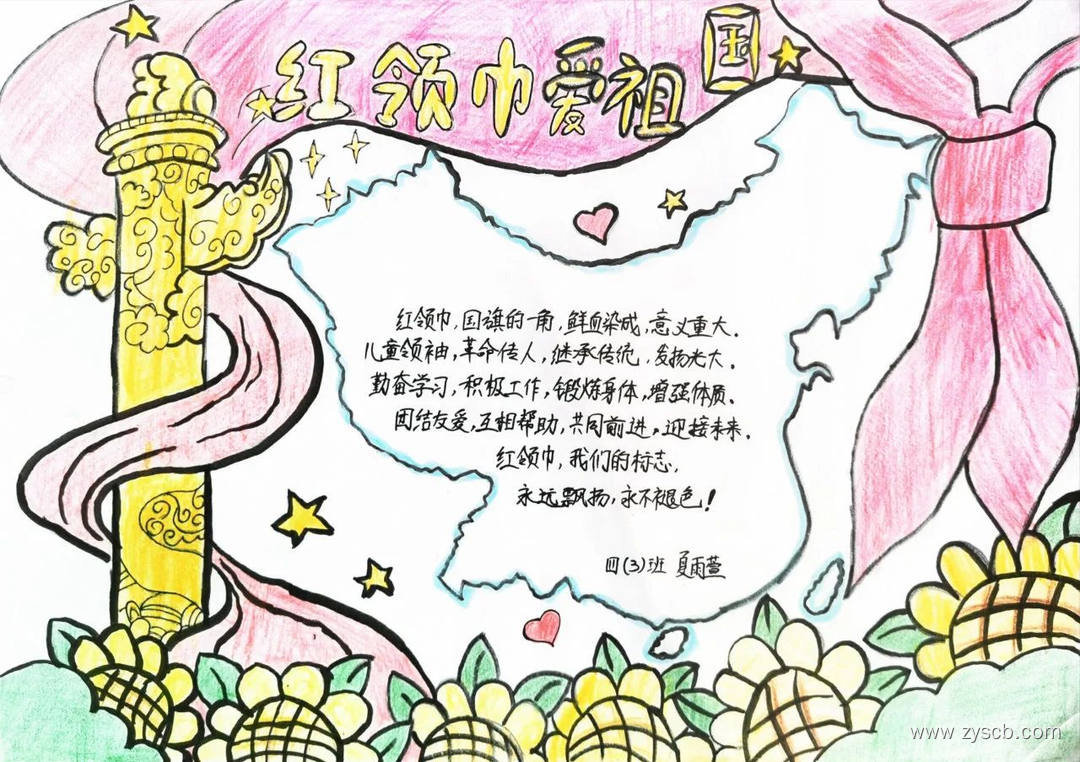 红领巾爱祖国
红领巾,国旗的一角,鲜血染成,意义重大.
儿童领袖,革命传人,继承传统,发扬光大.
勤奋学习,积极工作,锻炼身体,增强体质.
团结友爱,互相帮助,共同前进,迎接未来.
红领巾,我们的标志.
永远飘扬,永不褪色!
四(3)班 夏雨萱
www.zyscb.com